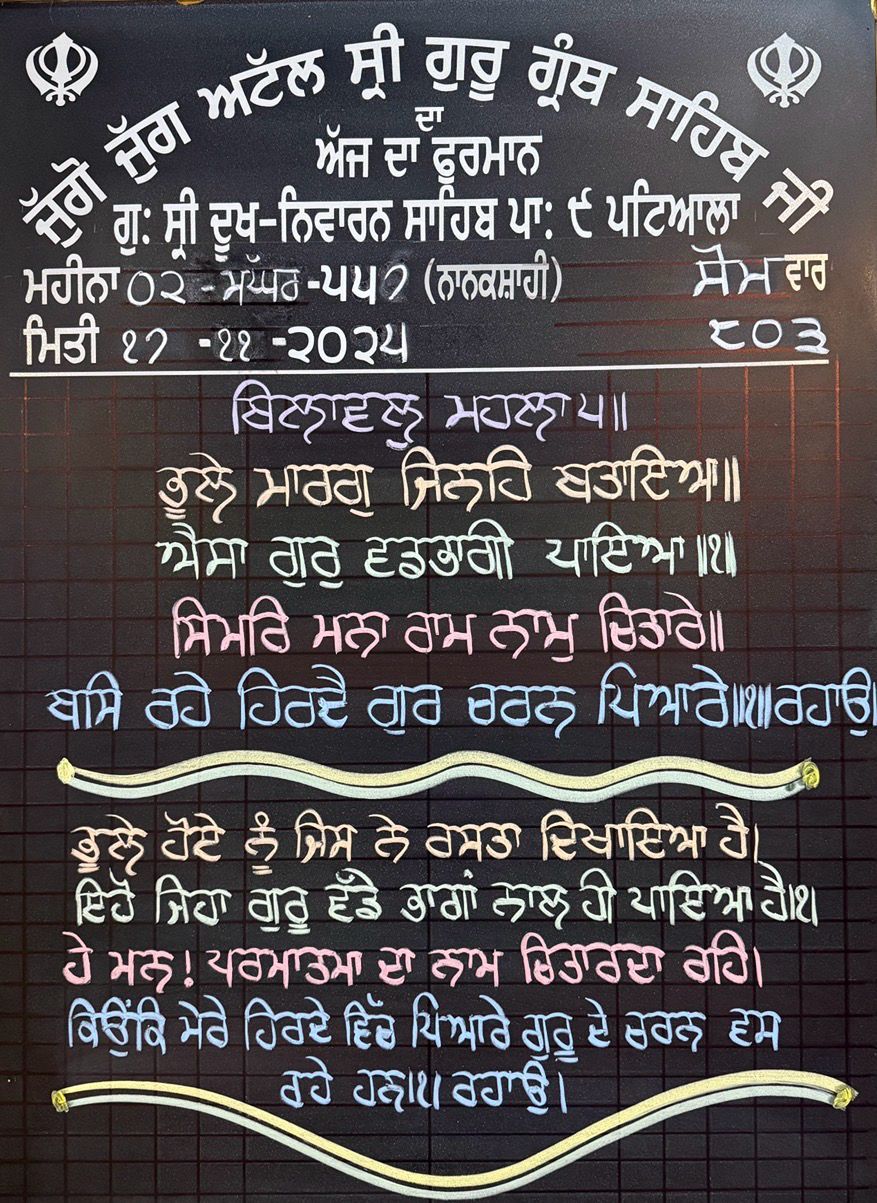 ਜੁੱਗੋ ਜੁੱਗ ਅਟੱਲ ਸ੍ਰੀ ਗੁਰੂ ਗ੍ਰੰਥ ਸਾਹਿਬ ਜੀ
ਦਾ
ਅੱਜ ਦਾ ਫੁਰਮਾਨ
ਗੁ: ਸ੍ਰੀ ਦੂਖ-ਨਿਵਾਰਨ ਸਾਹਿਬ ਪਾ: ੯ ਪਟਿਆਲਾ
ਮਹੀਨਾ ੦੨ - ਮੱਘਰ -੫੫੭ (ਨਾਨਕਸ਼ਾਹੀ) ਸੋਮ ਵਾਰ
ਮਿਤੀ ੧੭ -੧੧ -੨੦੨੫ ੮੦੩
ਬਿਲਾਵਲੁ ਮਹਲਾ ੫॥
ਭੂਲੇ ਮਾਰਗੁ ਜਿਨਹਿ ਬਤਾਇਆ॥
ਐਸਾ ਗੁਰੁ ਵਡਭਾਗੀ ਪਾਇਆ॥੧॥
ਸਿਮਰਿ ਮਨਾ ਰਾਮ ਨਾਮੁ ਚਿਤਾਰੇ॥
ਬਸਿ ਰਹੇ ਹਿਰਦੈ ਗੁਰ ਚਰਨ ਪਿਆਰੇ॥੧॥ਰਹਾਉ॥
ਭੂਲੇ ਹੋਏ ਨੂੰ ਜਿਸ ਨੇ ਰਸਤਾ ਦਿਖਾਇਆ ਹੈ।
ਇਹੋ ਜਿਹਾ ਗੁਰੂ ਵੱਡੇ ਭਾਗਾਂ ਨਾਲ ਹੀ ਪਾਇਆ ਹੈ।੧।
ਹੇ ਮਨ! ਪਰਮਾਤਮਾ ਦਾ ਨਾਮ ਚਿਤਾਰਦਾ ਰਹਿ।
ਕਿਉਂਕਿ ਮੇਰੇ ਹਿਰਦੇ ਵਿੱਚ ਪਿਆਰੇ ਗੁਰੂ ਦੇ ਚਰਨ ਵਸ
ਰਹੇ ਹਨ।੧। ਰਹਾਉ।